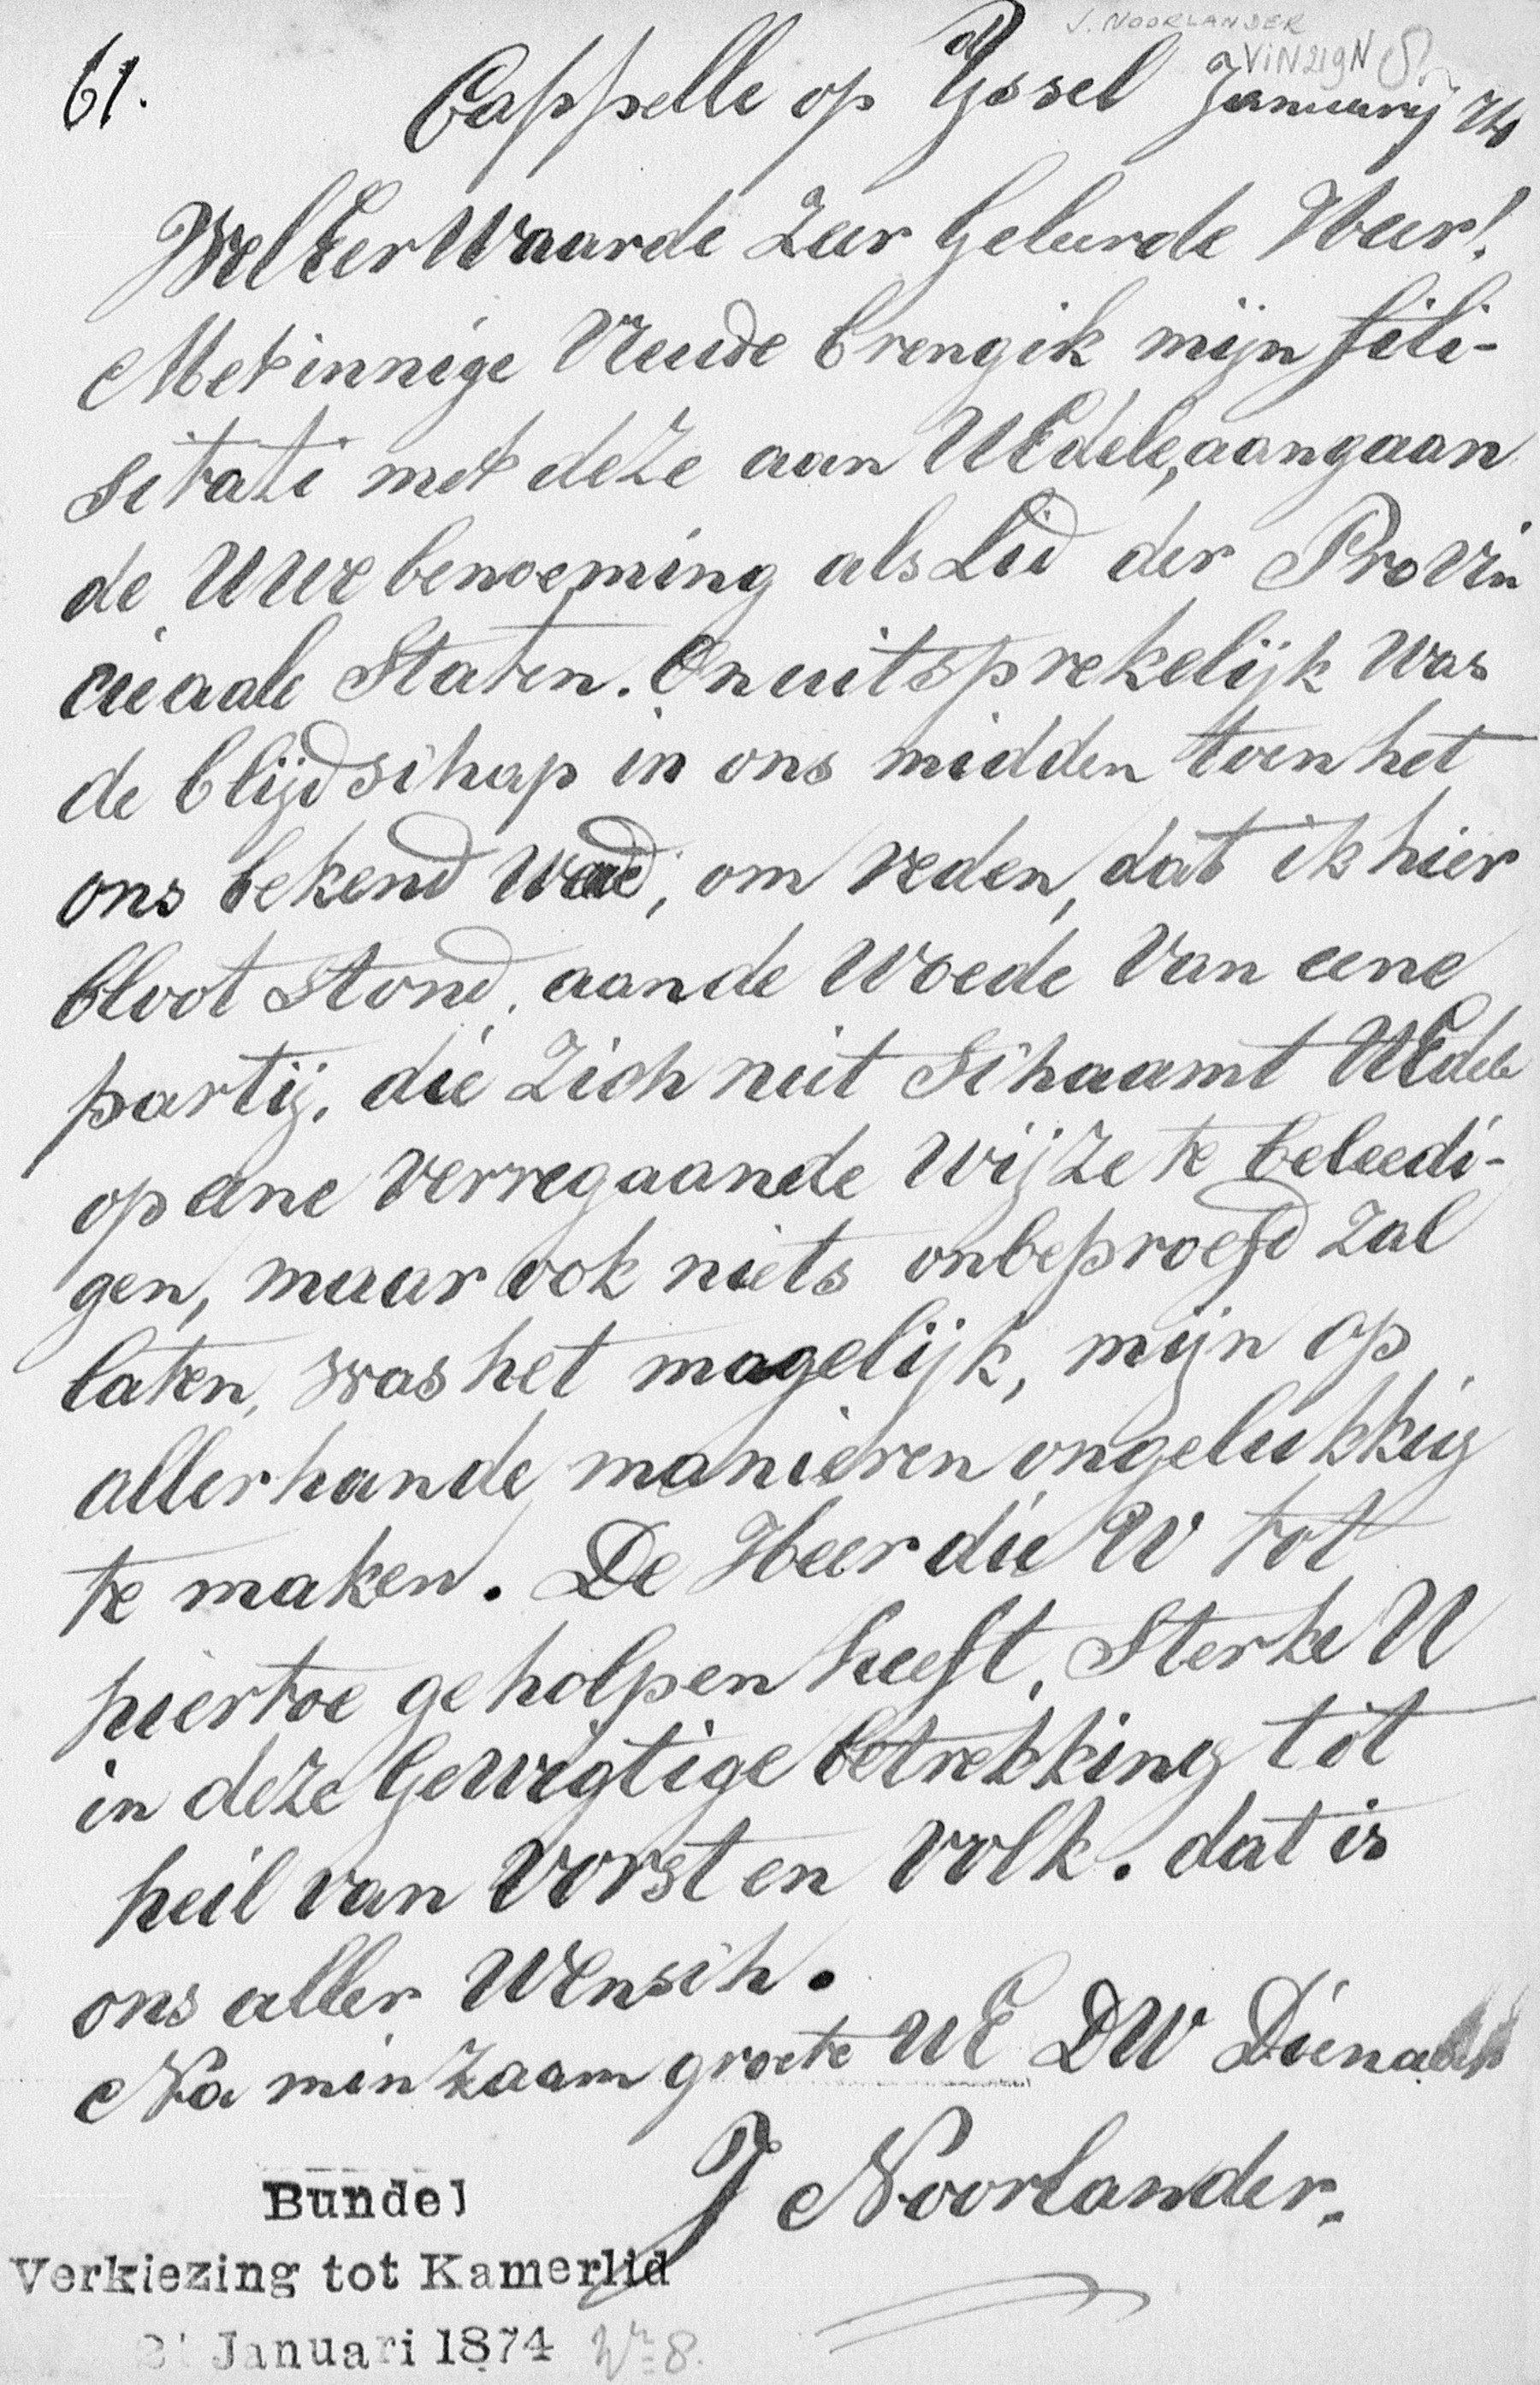 J. NOORLANDER
61.
Cappelle op d Yssel January 74
WelEerWaarde Zeer Geleerde Heer!
Met innige Vreude breng ik mijn fili-
sitati met deze aan UEdele, aangaan
de UWe benoeming als Lid der Provin
ciaale Staten. Onuitsprekelijk was
de blijdschap in ons midden toen het
ons bekend werd, om reden, dat ik hier
bloot stond, aan de woede van eene
partij, die zich niet schaamt UEdele
op eene verregaande wijze te beleedi-
gen, maar ook niets onbeproefd zal
laten, was het magelijk, mijn op
allerhande manieren ongelukkig
te maken. De Heer die U tot
hiertoe geholpen heeft, Sterke U
in deze Gewigtige betrekking tot
heil van Vorst en Volk. dat is
ons aller Wensch.
Na minzaam groete UE DW Dienaar
J Noorlander.
Bundel
Verkiezing tot Kamerlid
Januari 1874 Nr 8.